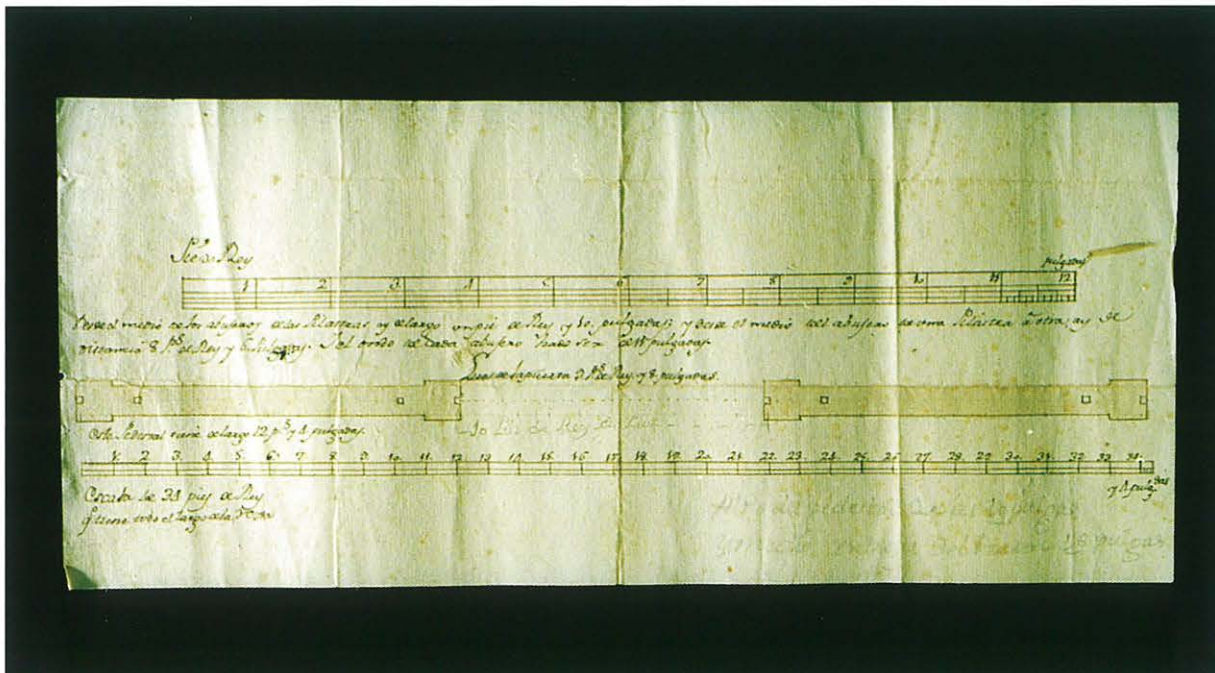 Pie de Rey
pulgadas
1 2 3 4 5 6 7 8 9 10 11 12
Desde el medio de los abujeros de las Pilastras ay de largo un pie de Rey y 10 pulgadas; y desde el medio del abujero de una Pilastra a otra, ay de
Distancia 8 Ps. de Rey y pulgadas. y el ondo de cada abujero hade ser de pulgadas.
Luz de la puerta 9 Ps. de Rey y 8 pulgadas.
Este Pedestal tiene de largo 12 ps. y 4 pulgadas.
10 de Rey de Luz
1 2 3 4 5 6 7 8 9 10 11 12 13 14 15 16 17 18 19 20 21 22 23 24 25 26 27 28 29 30 31 32 33 34
Escala de 34 pies de Rey
y 4 pulgadas
q. tiene todo el largo de la
pulgas
18 pulgas